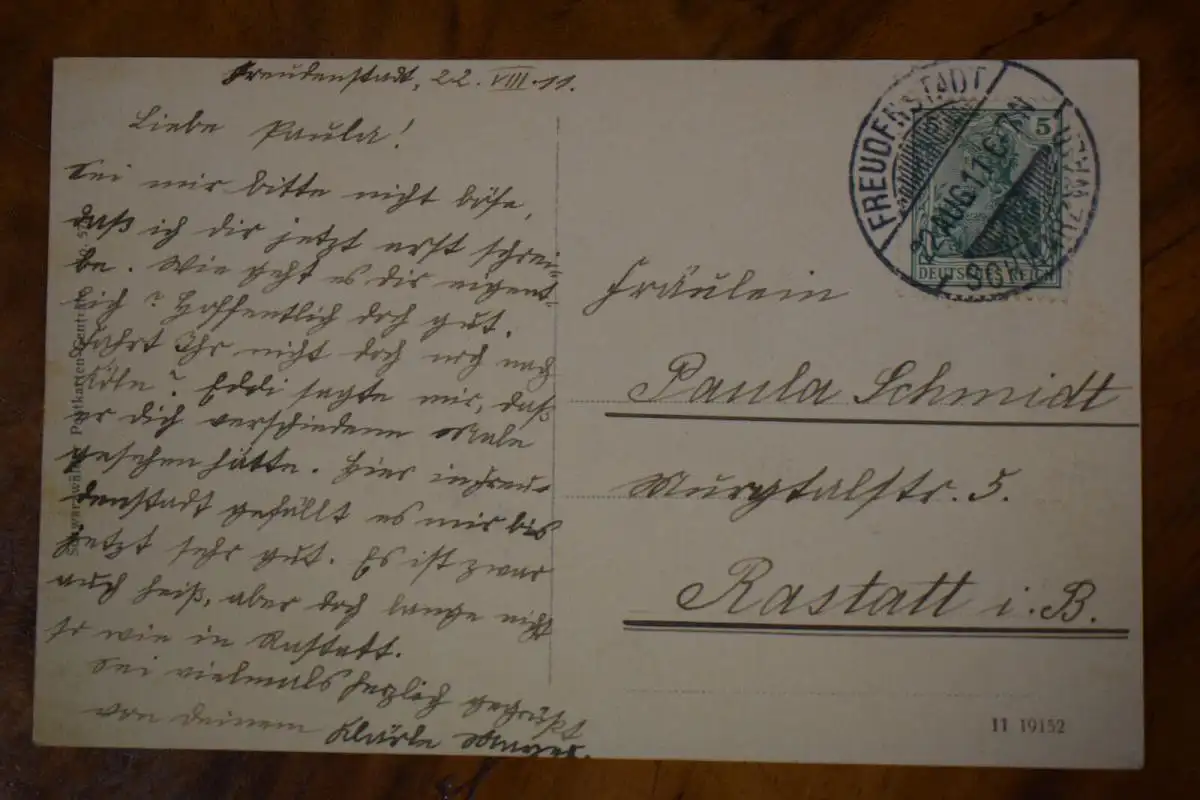 Freudenstadt, 22. VIII. 11.
Liebe Paula!
Sei mir bitte nicht böse,
daß ich dir jetzt erst schrei-
be. Wie geht es dir eigent-
lich? Hoffentlich doch gut.
Fahrt Ihr nicht doch noch nach
Köln? Eddi sagte mir, daß
er dich verschiedene Male
gesehen hätte. Hier in Freu-
denstadt gefällt es mir bis
jetzt sehr gut. Es ist zwar
auch heiß, aber doch lange nicht
so wie in Rastatt.
Sei vielmals herzlich gegrüßt
von deinem Klärle
Schwarzwälder Postkarten-Centrale
FREUDENSTADT
22 AUG 11 6-7N
SCHWARZWALD
5
DEUTSCHES REICH
Fräulein
Paula Schmidt
Murgtalstr. 5.
Rastatt i. B.
11 19152